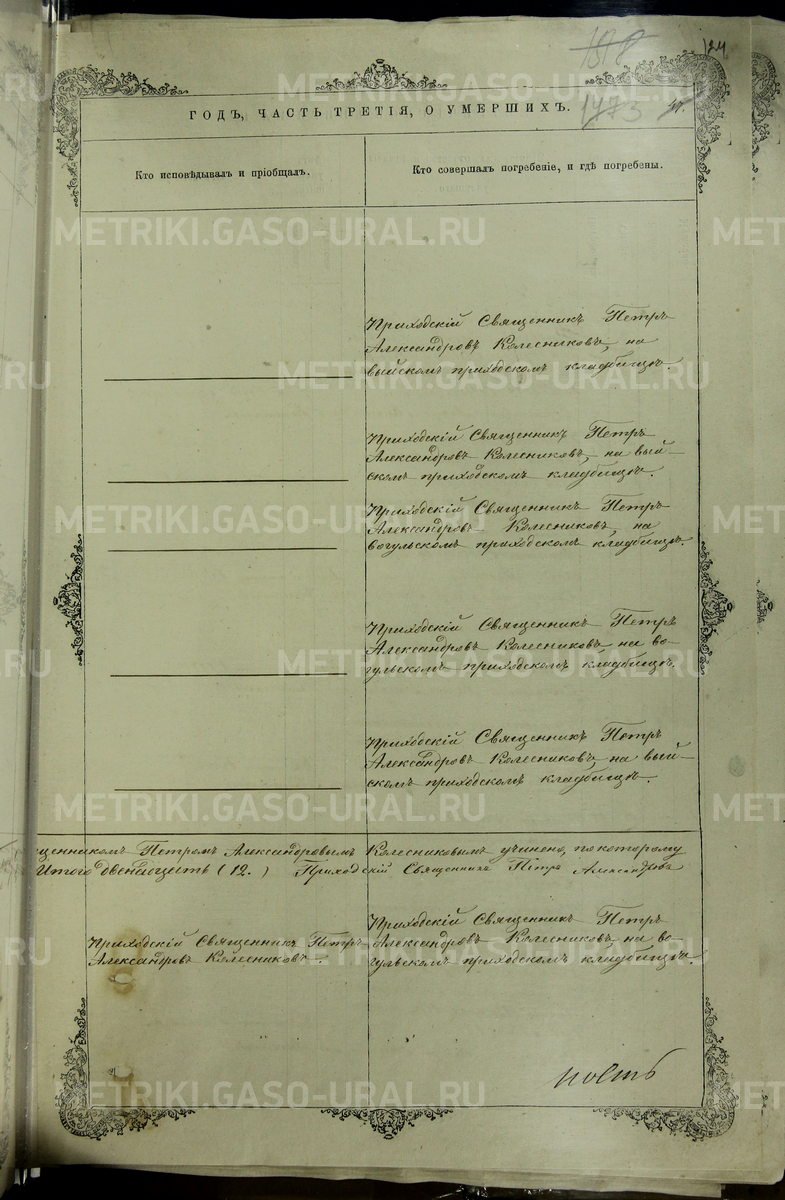 124
1473
ГОДЪ, ЧАСТЬ ТРЕТІЯ, О УМЕРШИХЪ.
Кто исповѣдывалъ и пріобщалъ.
Кто совершалъ погребеніе, и гдѣ погребены.
Приходскій Священникъ Петръ
Александровъ Колесниковъ, на
выйскомъ приходскомъ кладбищѣ.
Приходскій Священникъ Петръ
Александровъ Колесниковъ, на вый-
скомъ приходскомъ кладбищѣ.
Приходскій Священникъ Петръ
Александровъ Колесниковъ, на
вогульскомъ приходскомъ кладбищѣ.
Приходскій Священникъ Петръ
Александровъ Колесниковъ, на во-
гульскомъ приходскомъ кладбищѣ.
Приходскій Священникъ Петръ
Александровъ Колесниковъ, на вый-
скомъ приходскомъ кладбищѣ.
щенникомъ Петромъ Александровымъ Колесниковымъ учинено, по которому
Итого двенадцать (12.) Приходскій Священникъ Петръ Александровъ
Приходскій Священникъ Петръ
Александровъ Колесниковъ.
Приходскій Священникъ Петръ
Александровъ Колесниковъ, на во-
гульскомъ приходскомъ кладбищѣ.
METRIKI.GASO-URAL.RU